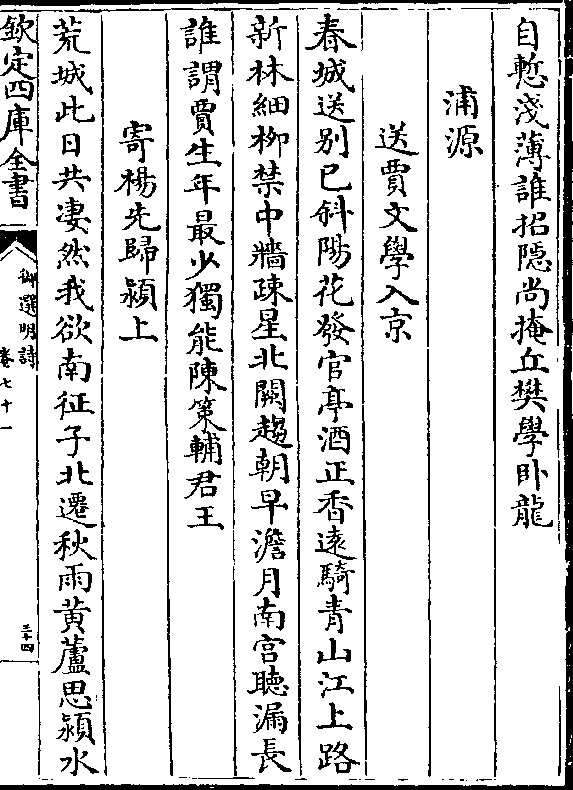 自慙淺薄誰招隠尚掩丘樊學卧龍
浦源
送賈文學入京
春城送别已斜陽花發官亭酒正香逺騎青山江上路
新林細栁禁中牆疎星北闕趨朝早澹月南宫聴漏長
誰謂賈生年最少獨能陳策輔君王
寄楊先歸潁上
荒城此日共凄然我欲南征子北遷秋雨黄蘆思潁水
欽定四庫全書
御選明詩
卷七十一
三十四